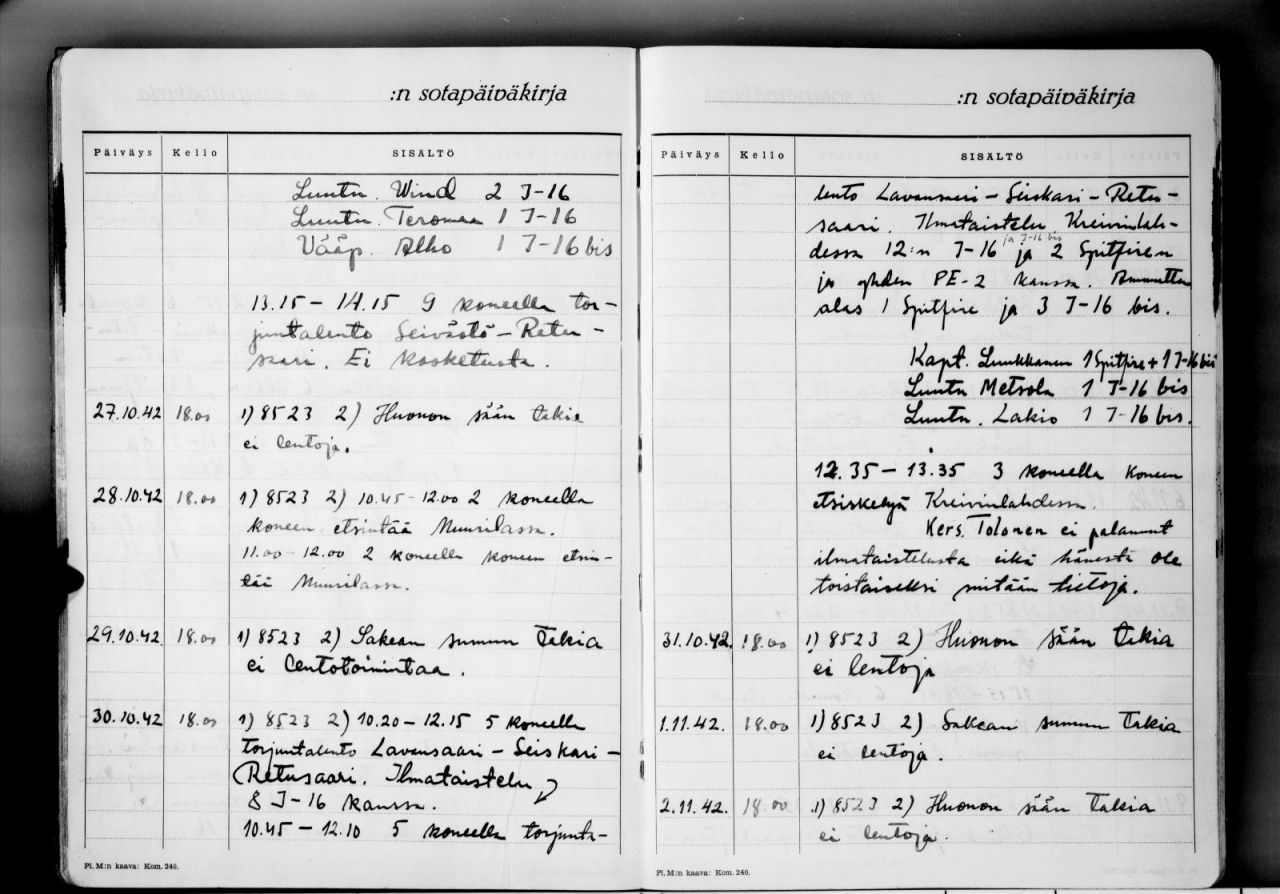 :n sotapäiväkirja
Päiväys Kello SISÄLTÖ
Luutn. Wind 2 I-16
Luutn. Teromaa 1 I-16
Vääp. Alho 1 I-16 bis
13.15 – 14.15 9 koneella tor-
juntalento Seivästö – Retu-
saari. Ei kosketusta.
27.10.42 18.00 1) 8523 2) Huonon sään takia
ei lentoja.
28.10.42 18.00 1) 8523 2) 10.45 – 12.00 2 koneella
koneen etsintää Muurilassa.
11.00 – 12.00 2 koneella koneen etsin-
tää Muurilassa.
29.10.42. 18.00 1) 8523 2) Sakean sumun takia
ei lentotoimintaa.
30.10.42 18.00 1) 8523 2) 10.20 – 12.15 5 koneella
torjuntalento Lavansaari – Seiskari –
Retusaari. Ilmataistelu
8 I-16 kanssa.
10.45 – 12.10 5 koneella torjunta-
Pl. M:n kaava: Kom. 240.
:n sotapäiväkirja
Päiväys Kello SISÄLTÖ
lento Lavansaari – Seiskari – Retu-
saari. Ilmataistelu Kreivinlah-
ja I-16 bis
dessa 12:n I-16 ja 2 Spitfiren
ja yhden PE-2 kanssa. Ammuttu
alas 1 Spitfire ja 3 I-16 bis.
Kapt. Luukkanen 1 Spitfire + 1 I-16 bis
Luutn Metsola 1 I-16 bis
Luutn. Lakio 1 I-16 bis.
12.35 – 13.35 3 koneella koneen
etsiskelyä Kreivinlahdessa.
Kers. Tolonen ei palannut
ilmataistelusta eikä hänestä ole
toistaiseksi mitään tietoja.
31.10.42. 18.00 1) 8523 2) Huonon sään takia
ei lentoja
1.11.42. 18.00 1) 8523 2) Sakean sumun takia
ei lentoja.
2.11.42. 18.00 1) 8523 2) Huonon sään takia
ei lentoja
Pl. M:n kaava: Kom. 240.